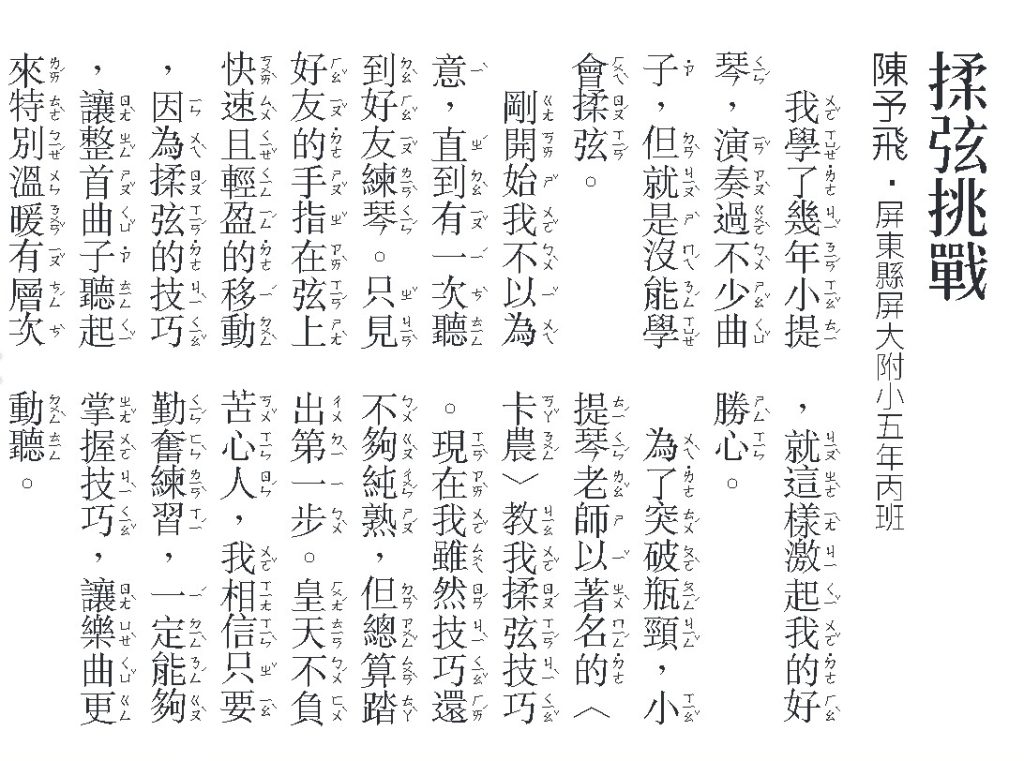 揉弦挑戰
陳予飛・屏東縣屏大附小五年丙班
我學了幾年小提
琴，演奏過不少曲
子，但就是沒能學
會揉弦。
剛開始我不以為
意，直到有一次聽
到好友練琴。只見
好友的手指在弦上
快速且輕盈的移動
，因為揉弦的技巧
，讓整首曲子聽起
來特別溫暖有層次
，就這樣激起我的好
勝心。
為了突破瓶頸，小
提琴老師以著名的〈
卡農〉教我揉弦技巧
。現在我雖然技巧還
不夠純熟，但總算踏
出第一步。皇天不負
苦心人，我相信只要
勤奮練習，一定能夠
掌握技巧，讓樂曲更
動聽。